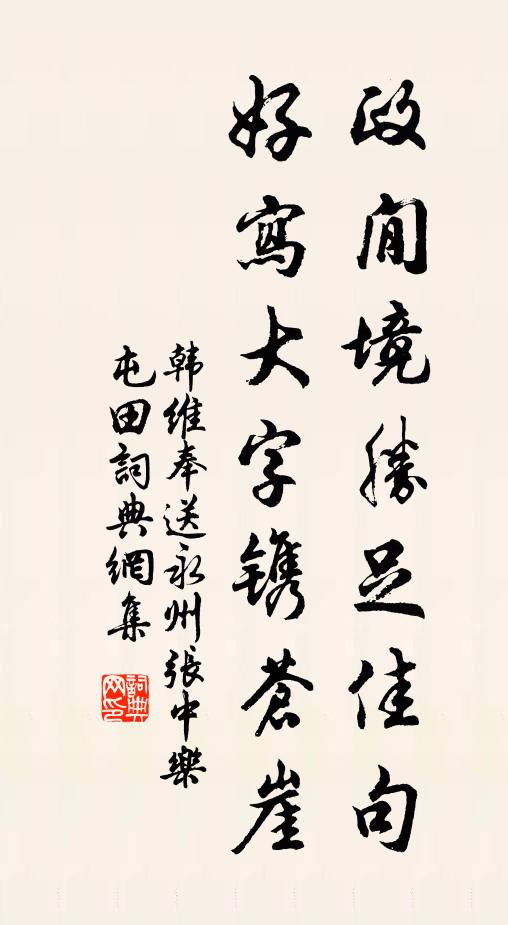 政閒境勝足佳句
好寫大字鐫蒼崖
韩維奉送永州張中樂
屯田詞典網集
詞典
网印